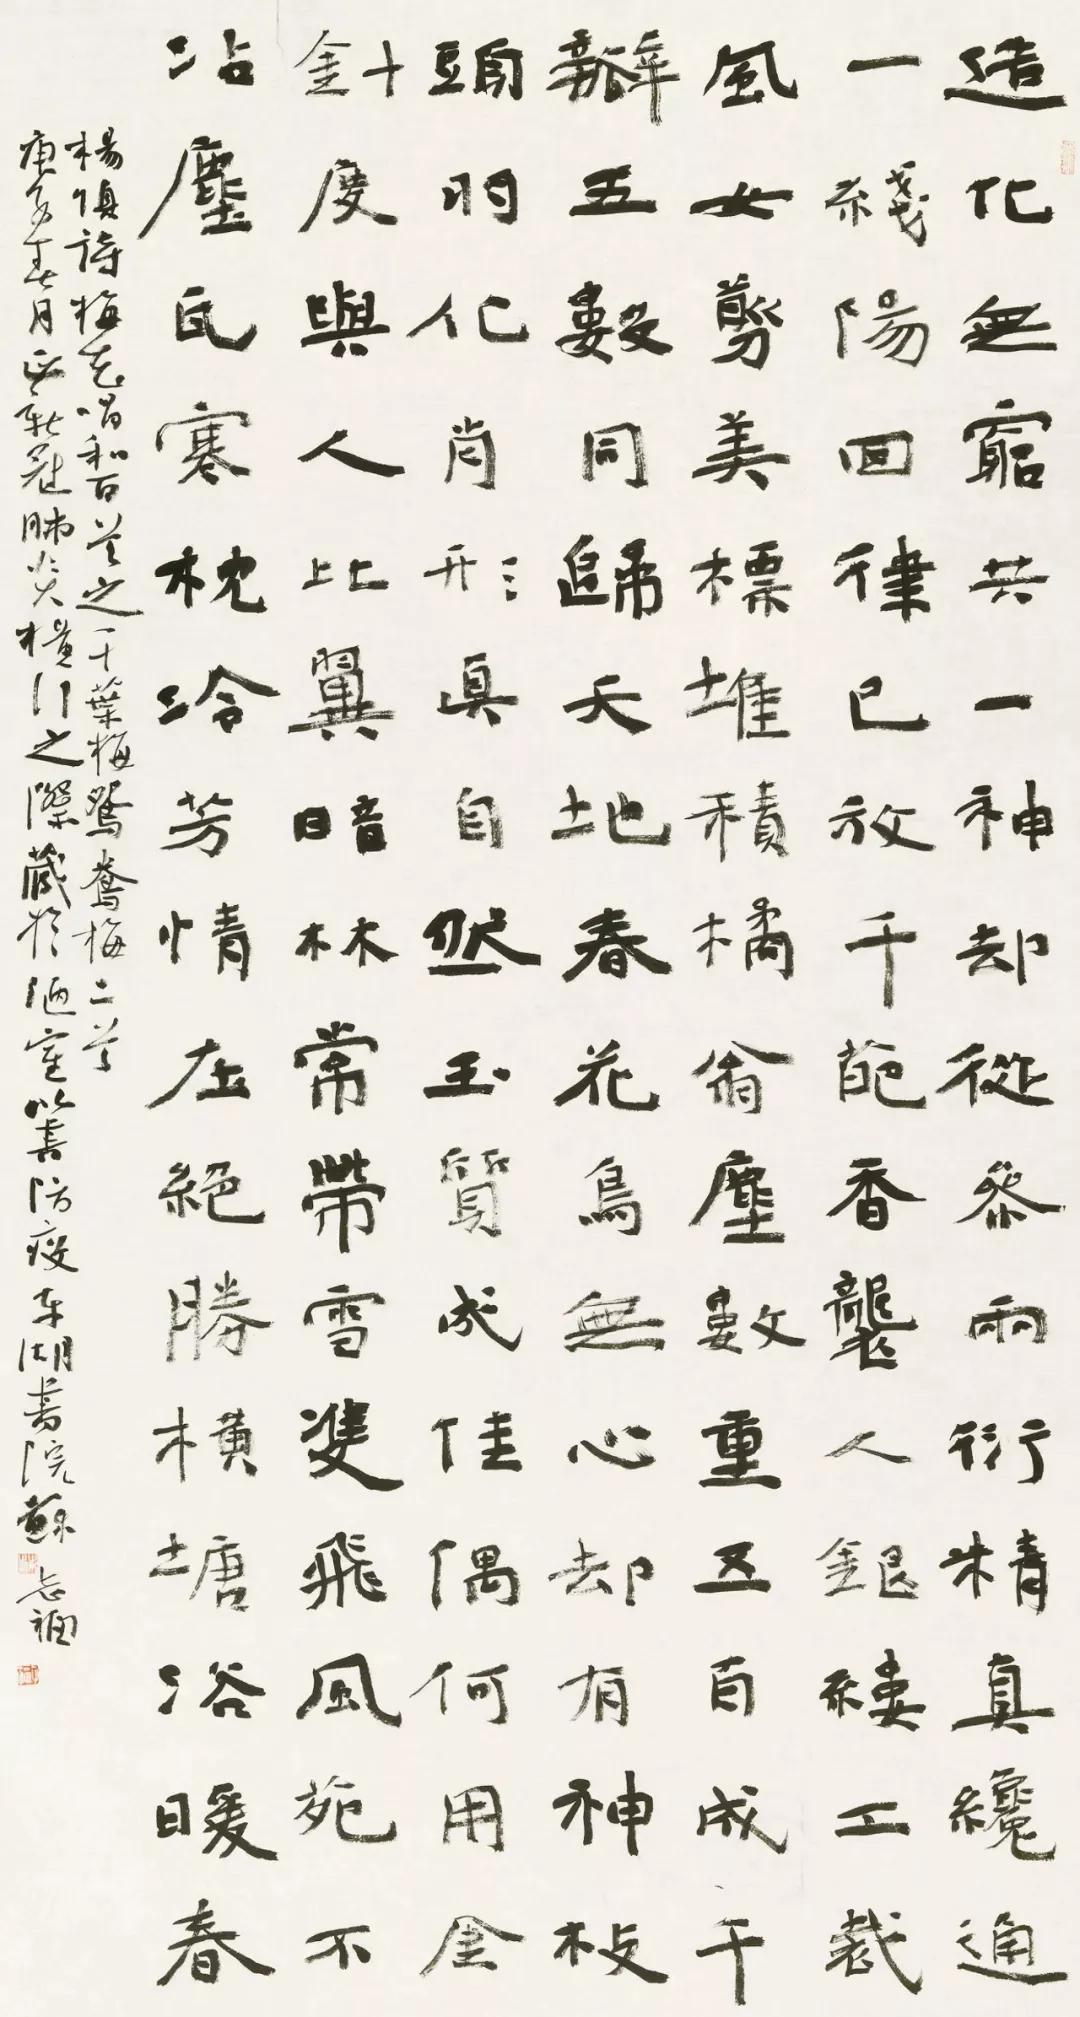 造化無窮共一神却從參兩衍精真纔通
一綫陽回律已放千葩香襲人銀縷工裁
風女剪美標堆積橘翁塵數重五百成千
瓣五數同歸天地春花鳥無心却有神枝
頭的化肖形真自然玉質成佳偶何用金
針度與人比翼暗林常帶雪雙飛風苑不
沾塵瓦寒枕冷芳情在絕勝橫塘浴暖春
楊慎詩梅花唱和百首之千葉梅鴛鴦梅二首
庚子春月正新冠肺炎橫行之際藏於陋室以書防疫東湖書院蘇